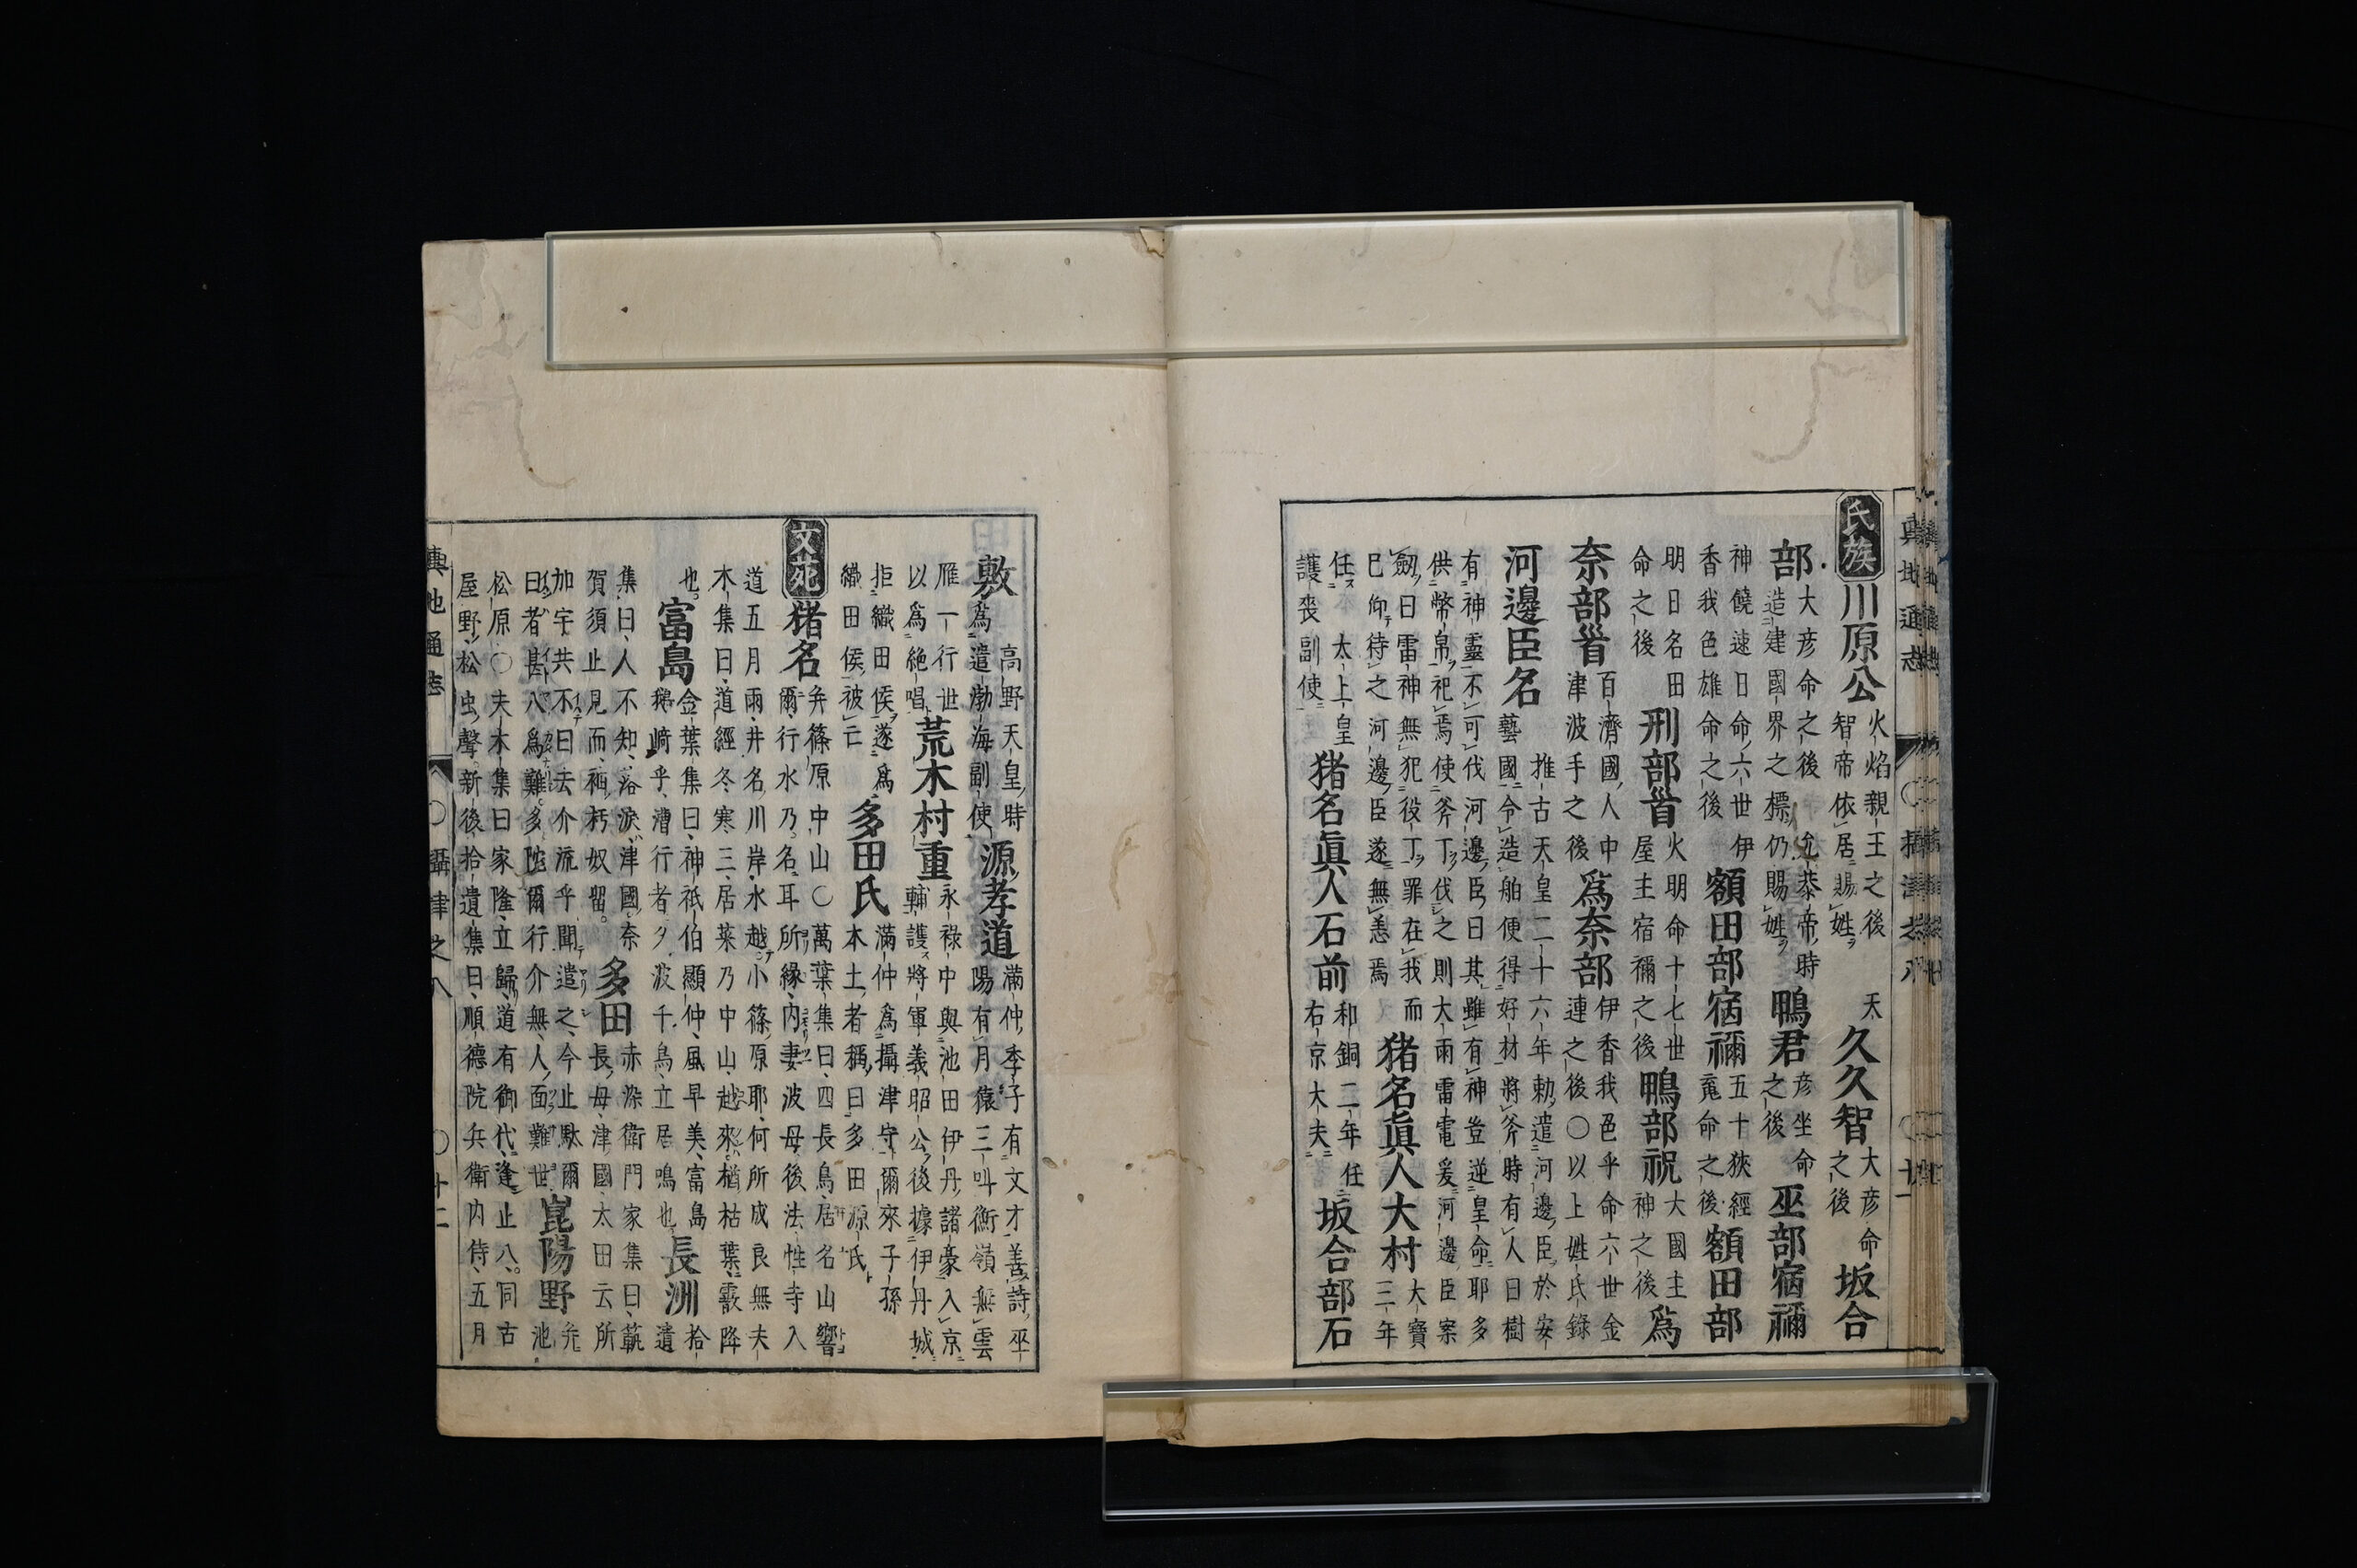 氏族
川原公 火焰親王之後天
智帝依居賜姓
久久智 大彦命
之後
坂合
部 大彦命之後允恭帝時
造建國界之標仍賜姓
鴨君 彦坐命
之後
巫部宿禰
神饒速日命六世伊
香我色雄命之後
額田部宿禰 五十狹經
䰠命之後
額田部
明日名田
命之後
刑部首 火明命十七世
屋主宿禰之後
鴨部祝 大國主
神之後
爲
奈部首 百濟國人中
津波手之後
爲奈部 伊香我色乎命六世金
連之後〇以上姓氏錄
河邊臣名 推古天皇二十六年勅遣河邊臣於安
藝國令造舶便得好材將斧時有人曰樹
有神靈不可伐河邊臣曰其雖有神豈逆皇命耶多
供幣帛祀焉使斧丁伐之則大雨雷電爰河邊臣案
劔曰雷神無犯役丁罪在我而
已仰待之河邊臣遂無恙焉
猪名眞人大村 大寶
三年
任太上皇
護喪副使
猪名眞人石前 和銅二年任
右京大夫
坂合部石
敷 高野天皇時
爲遣渤海副使
源孝道 滿仲季子有文才善詩巫
陽有月猿三叫衡嶺無雲
雁一行世
以爲絶唱
荒木村重 永祿中與池田伊丹諸豪入京
輔護將軍義昭公後據伊丹城
拒織田侯遂爲
織田侯被亡
多田氏 滿仲爲攝津守爾來子孫
本土者稱曰多田源氏
文苑
猪名 弁篠原中山〇萬葉集曰四長鳥居名山響
爾行水乃名耳所縁內妻波母後法性寺入
道五月雨井名川岸水越小篠原耶何所成良無夫
木集曰道經冬寒三居菜乃中山越來楢枯葉霰降
也
富島 金葉集曰神祇伯顯仲風早美富島
鵜崎乎漕行者夕波千鳥立居鳴也
長洲 拾
遺
集曰人不知落淚津國奈
賀須止見而袖朽奴留
多田 赤染衛門家集曰蓻
長母津國太田云所
加宇共不曰去介流乎聞遣之今止駄爾
曰者甚八爲難多陀爾行介無人面難世
崑陽野 弁
池
松原〇夫木集曰家隆立歸道有御代逢止八同古
屋野松虫聲新後拾遺集曰順德院兵衛內侍五月
輿地通志 〇攝津之八 〇十二